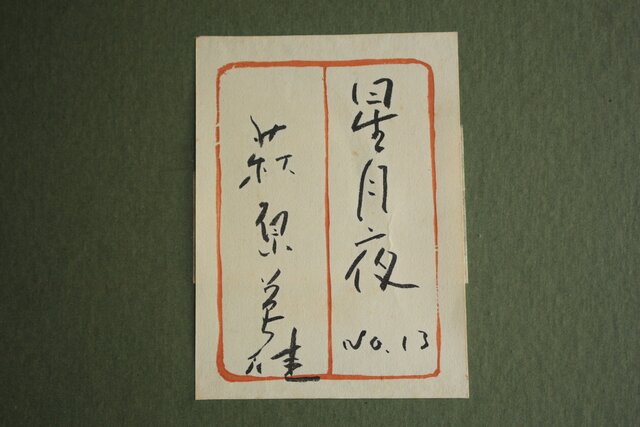 星月夜
No.13
萩原英雄